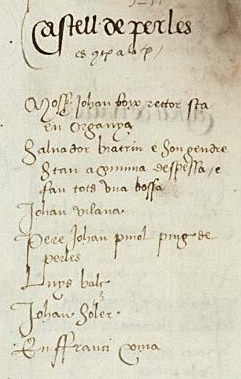 Castell de perles
Mossen Johan boix rector sta
en Organya
Salvador biatriu e son gendre
stan a comuna despessa e
fan tots una bossa
Johan vilana
Pere Johan pinol
perles
Luys
Johan Soler
En ffranci Coma